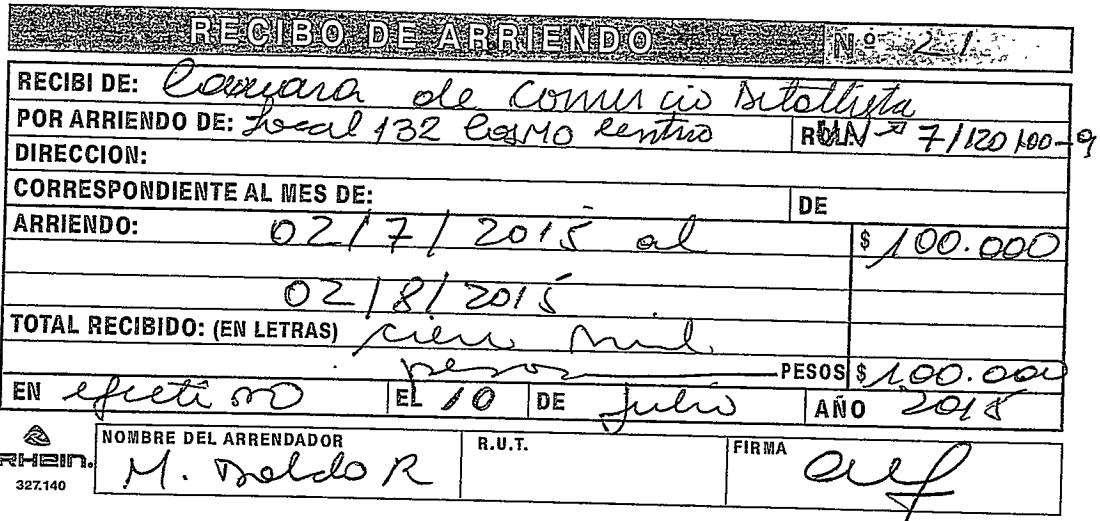 RECIBO DE ARRIENDO Nº 21
RECIBI DE: Camara de Comercio Detallista
POR ARRIENDO DE: Local 132 Cosmo Centro R 7/120100-9
DIRECCION:
CORRESPONDIENTE AL MES DE: DE
ARRIENDO: 02/7/2015 al $ 100.000
02/8/2015
TOTAL RECIBIDO: (EN LETRAS) cien mil
pesos PESOS $ 100.000
EN efectivo EL 10 DE julio AÑO 2015
NOMBRE DEL ARRENDADOR R.U.T. FIRMA
RHEIN. M. R
327.140